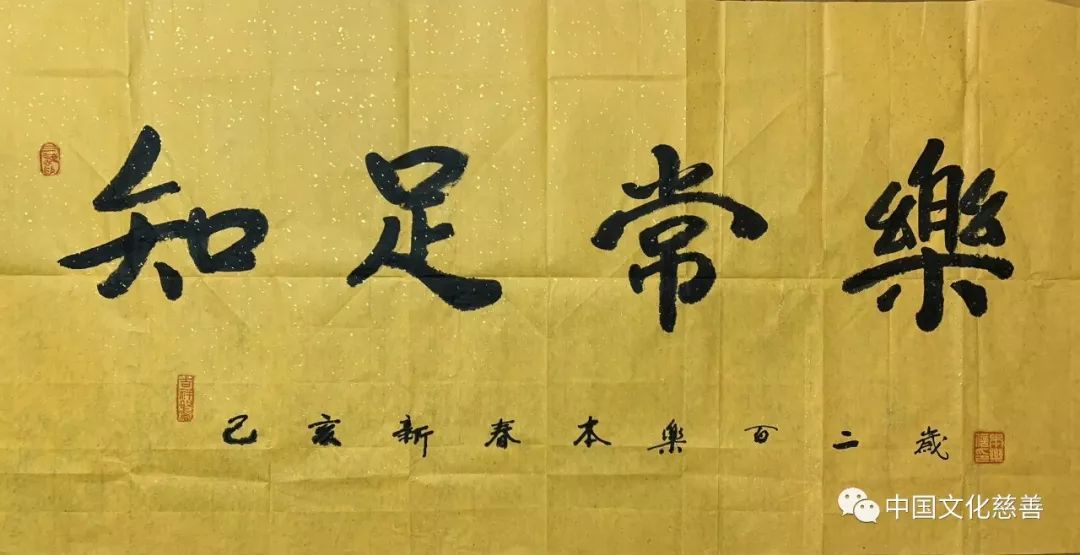 知足常樂
己亥新春本樂百二歲
中国文化慈善